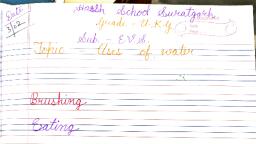 Date
3/12
Health School Suratgarh
Grade - U.K.G.
Sub - E.V.S.
Topic Uses of water
Brushing
Eating